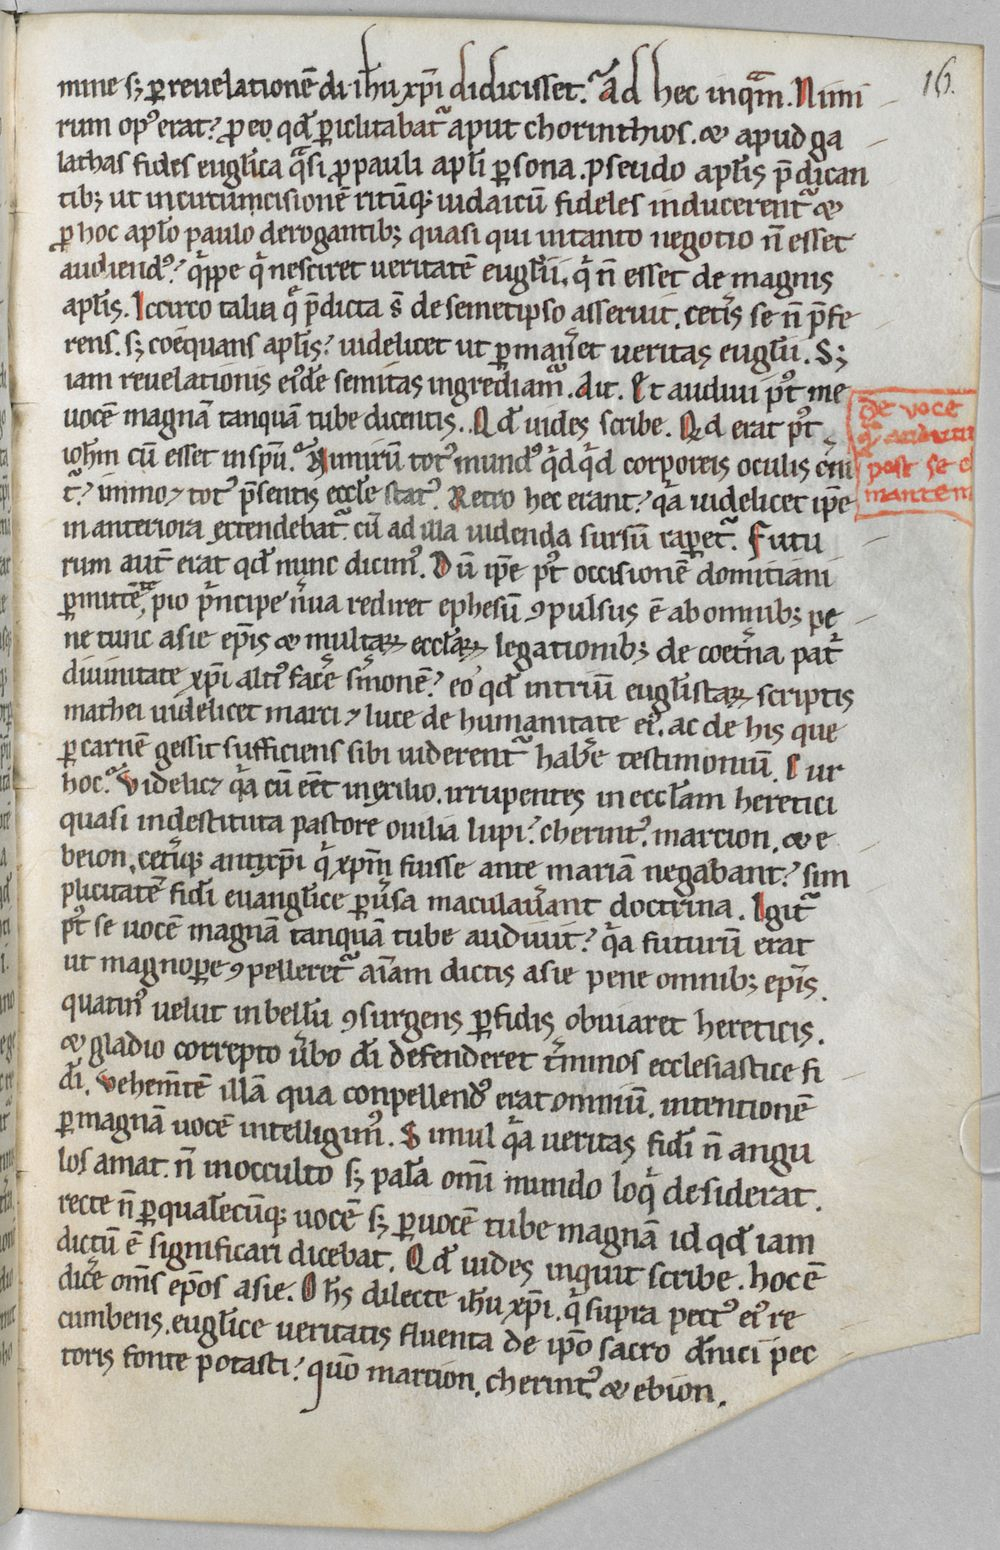 16.
mine s; ꝑ reuelationē dı̄ ih̄u xp̄i didicisset. Ad hec inquā. Nimi
rum opꝰ erat? ꝓ eo qd̄ ꝑiclitabat᷑ aput chorinthios. & apud ga
lathas fides eug̅lica qͣsi ꝓ pauli apl̄i ꝑsona. pseudo apl̄is p̄dican
tib; ut in circumcisionē ritūq; iudaicū fideles inducerent᷑ &
ꝑ hoc apl̄o paulo derogantib; quasi qui in tanto negotio n̄ esset
audiendꝰ? qͥppe qͥ nesciret veritatē eug̅lii. qͥ n̄ esset de magnis
apl̄is. Iccirco talia qͥ p̄dicta s̄ de semetipso asseruit. cet̾is se n̄ p̄fe
rens. s; coequans apl̄is? uidelicet ut ꝑman̾et ueritas eug̅lii. S;
iam reuelationis eiꝰdē semitas ingrediam᷑. Ait. Et audiui pꝰt me
uocē magnā tanquā tube dicentis. Qd̄ uides scribe. Qd erat pꝰt
ioh̄m cū esset in sp̄u. Nimirū totꝰ mundꝰ qͥd qͥd corporeis oculis cͤni
t᷑? immo ⁊ totꝰ p̄sentis eccl̄e statꝰ. Retro hec erant? qͥa uidelicet ip̄e
in anteriora extendebat᷑. cū ad illa uidenda sursū raꝑet᷑. Futu
rum aut̄ erat qd̄ nunc dicimꝰ. Dū ip̄e pꝰt occisionē domitiani
ꝑmittēte pio pͥncipe n̾ua rediret ephesū ꝯpulsus ē ab omnib; pe
ne tunc asie ep̄is & multaꝝ eccl̄aꝝ legationib; de coet̾na pat̾
diuinitate xp̄i altiꝰ fac̾e s̾monē? eo qd̄ in triū eug̅listaꝝ scriptis
mathei uidelicet marci ⁊ luce de humanitate eiꝰ. ac de his que
ꝑ carnē gessit sufficiens sibi uiderent᷑ hab̾e testimoniū. Cur
hoc. Videlic; qͥa cū eēt in exilio. irrupentes in eccl̄am heretici
quasi in destituta pastore ouilia lupi? cherintꝰ. marcion. & e
beion. cet̾iq; antixp̄i qͥ xp̄m fuisse ante mariā negabant? sim
plicitatē fidi euang̅lice ꝑu̾sa maculau̾ant doctrina. Igit᷑
pꝰt se uocē magnā tanquā tube audiuit? qͥa futurū erat
ut magnoꝑe ꝯpelleret᷑ aīam dictis asie pene omnib; ep̄is.
quatinꝰ uelut in bellū ꝯsurgens ꝑfidis obuiaret hereticis.
& gladio correpto u̾bo dı̄ defenderet t̾minos ecclesiastice fi
dı̄. Vehem̄tē illā qua conpellendꝰ erat omniū. intentionē
ꝑ magnā uocē intelligimꝰ. Simul qͥa ueritas fidı̄ n̄ angu
los amat. n̄ in occulto s; palā om̄i mundo loqͥ desiderat.
recte n̄ ꝑ qualēcūq; uocē s; ꝑ uocē tube magnā id qd̄ iam
dictū ē significari dicebat. Qd̄ uides inquit scribe. hoc ē
dic̾e om̄s ep̄os asie. O ih̄s dilecte ih̄u xp̄i. qͥ supra pectꝰ eiꝰ re
cumbens. eug̅lice ueritatis fluenta de ip̄o sacro dn̄ici pec
toris fonte potasti? quō marcion. cherintꝰ & ebion.
de voce
post se
mantem